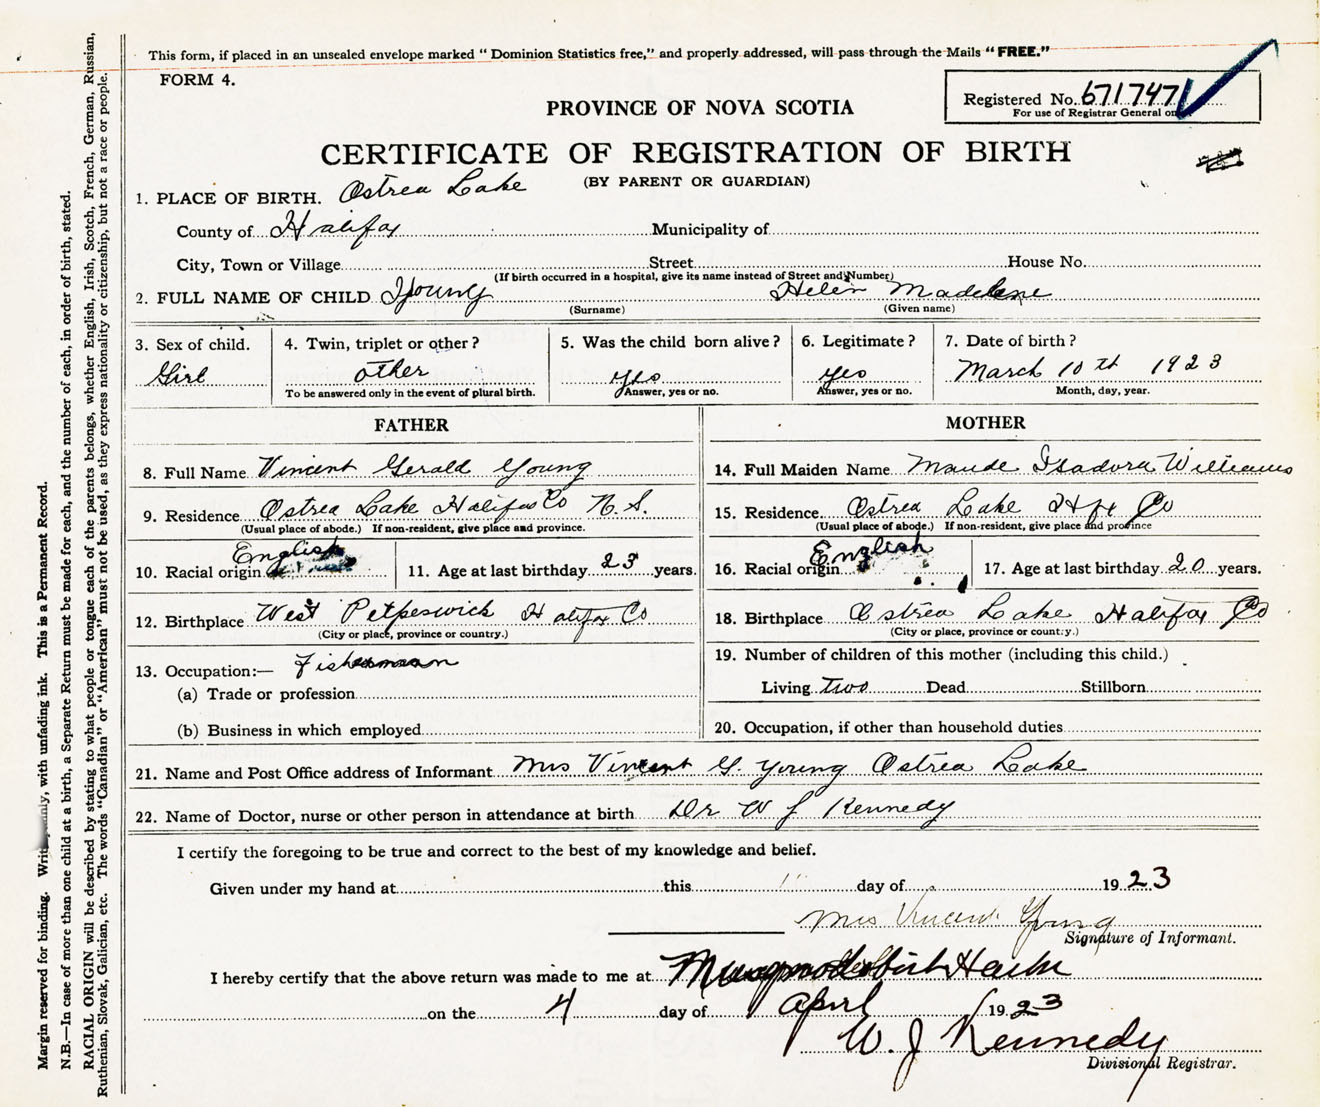 This form, if placed in an unsealed envelope marked "Dominion Statistics free," and properly addressed, will pass through the Mails "FREE."
FORM 4.
Registered No. 671747
For use of Registrar General on
PROVINCE OF NOVA SCOTIA
CERTIFICATE OF REGISTRATION OF BIRTH
(BY PARENT OR GUARDIAN)
1. PLACE OF BIRTH. Ostrea Lake
County of Halifax Municipality of
City, Town or Village Street House No.
(If birth occurred in a hospital, give its name instead of Street and Number)
2. FULL NAME OF CHILD Young Helen Madelene
(Surname) (Given name)
3. Sex of child. 4. Twin, triplet or other? 5. Was the child born alive? 6. Legitimate? 7. Date of birth?
Girl other yes yes March 10th 1923
To be answered only in the event of plural birth. Answer, yes or no. Answer, yes or no. Month, day, year.
FATHER
8. Full Name Vincent Gerald Young
9. Residence Ostrea Lake Halifax Co N.S.
(Usual place of abode.) If non-resident, give place and province.
English
10. Racial origin 11. Age at last birthday 23 years.
12. Birthplace West Petpeswick Halifax Co
(City or place, province or country.)
13. Occupation:— Fisherman
(a) Trade or profession
(b) Business in which employed
MOTHER
14. Full Maiden Name Maude Isadora Williams
15. Residence Ostrea Lake Hfx Co
(Usual place of abode.) If non-resident, give place and province
English
16. Racial origin 17. Age at last birthday 20 years.
18. Birthplace Ostrea Lake Halifax Co
(City or place, province or country.)
19. Number of children of this mother (including this child.)
Living two Dead Stillborn
20. Occupation, if other than household duties
21. Name and Post Office address of Informant Mrs Vincent G. Young Ostrea Lake
22. Name of Doctor, nurse or other person in attendance at birth Dr W J Kennedy
I certify the foregoing to be true and correct to the best of my knowledge and belief.
Given under my hand at this day of 1923
Mrs Vincent Young
Signature of Informant.
I hereby certify that the above return was made to me at
on the 4 day of April 1923
W. J. Kennedy
Divisional Registrar.
Margin reserved for binding. Write plainly, with unfading ink. This is a Permanent Record.
N.B.—In case of more than one child at a birth, a Separate Return must be made for each, and the number of each, in order of birth, stated.
RACIAL ORIGIN will be described by stating to what people or tongue each of the parents belongs, whether English, Irish, Scotch, French, German, Russian,
Ruthenian, Slovak, Galician, etc. The words "Canadian" or "American" must not be used, as they express nationality or citizenship, but not a race or people.